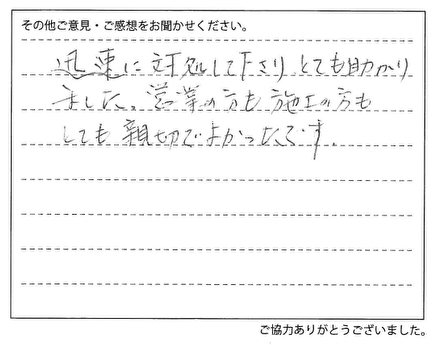 その他ご意見・ご感想をお聞かせください。
迅速に対処して下さり、とても助かり
ました。営業の方も施工の方も
とても親切でよかったです。
ご協力ありがとうございました。